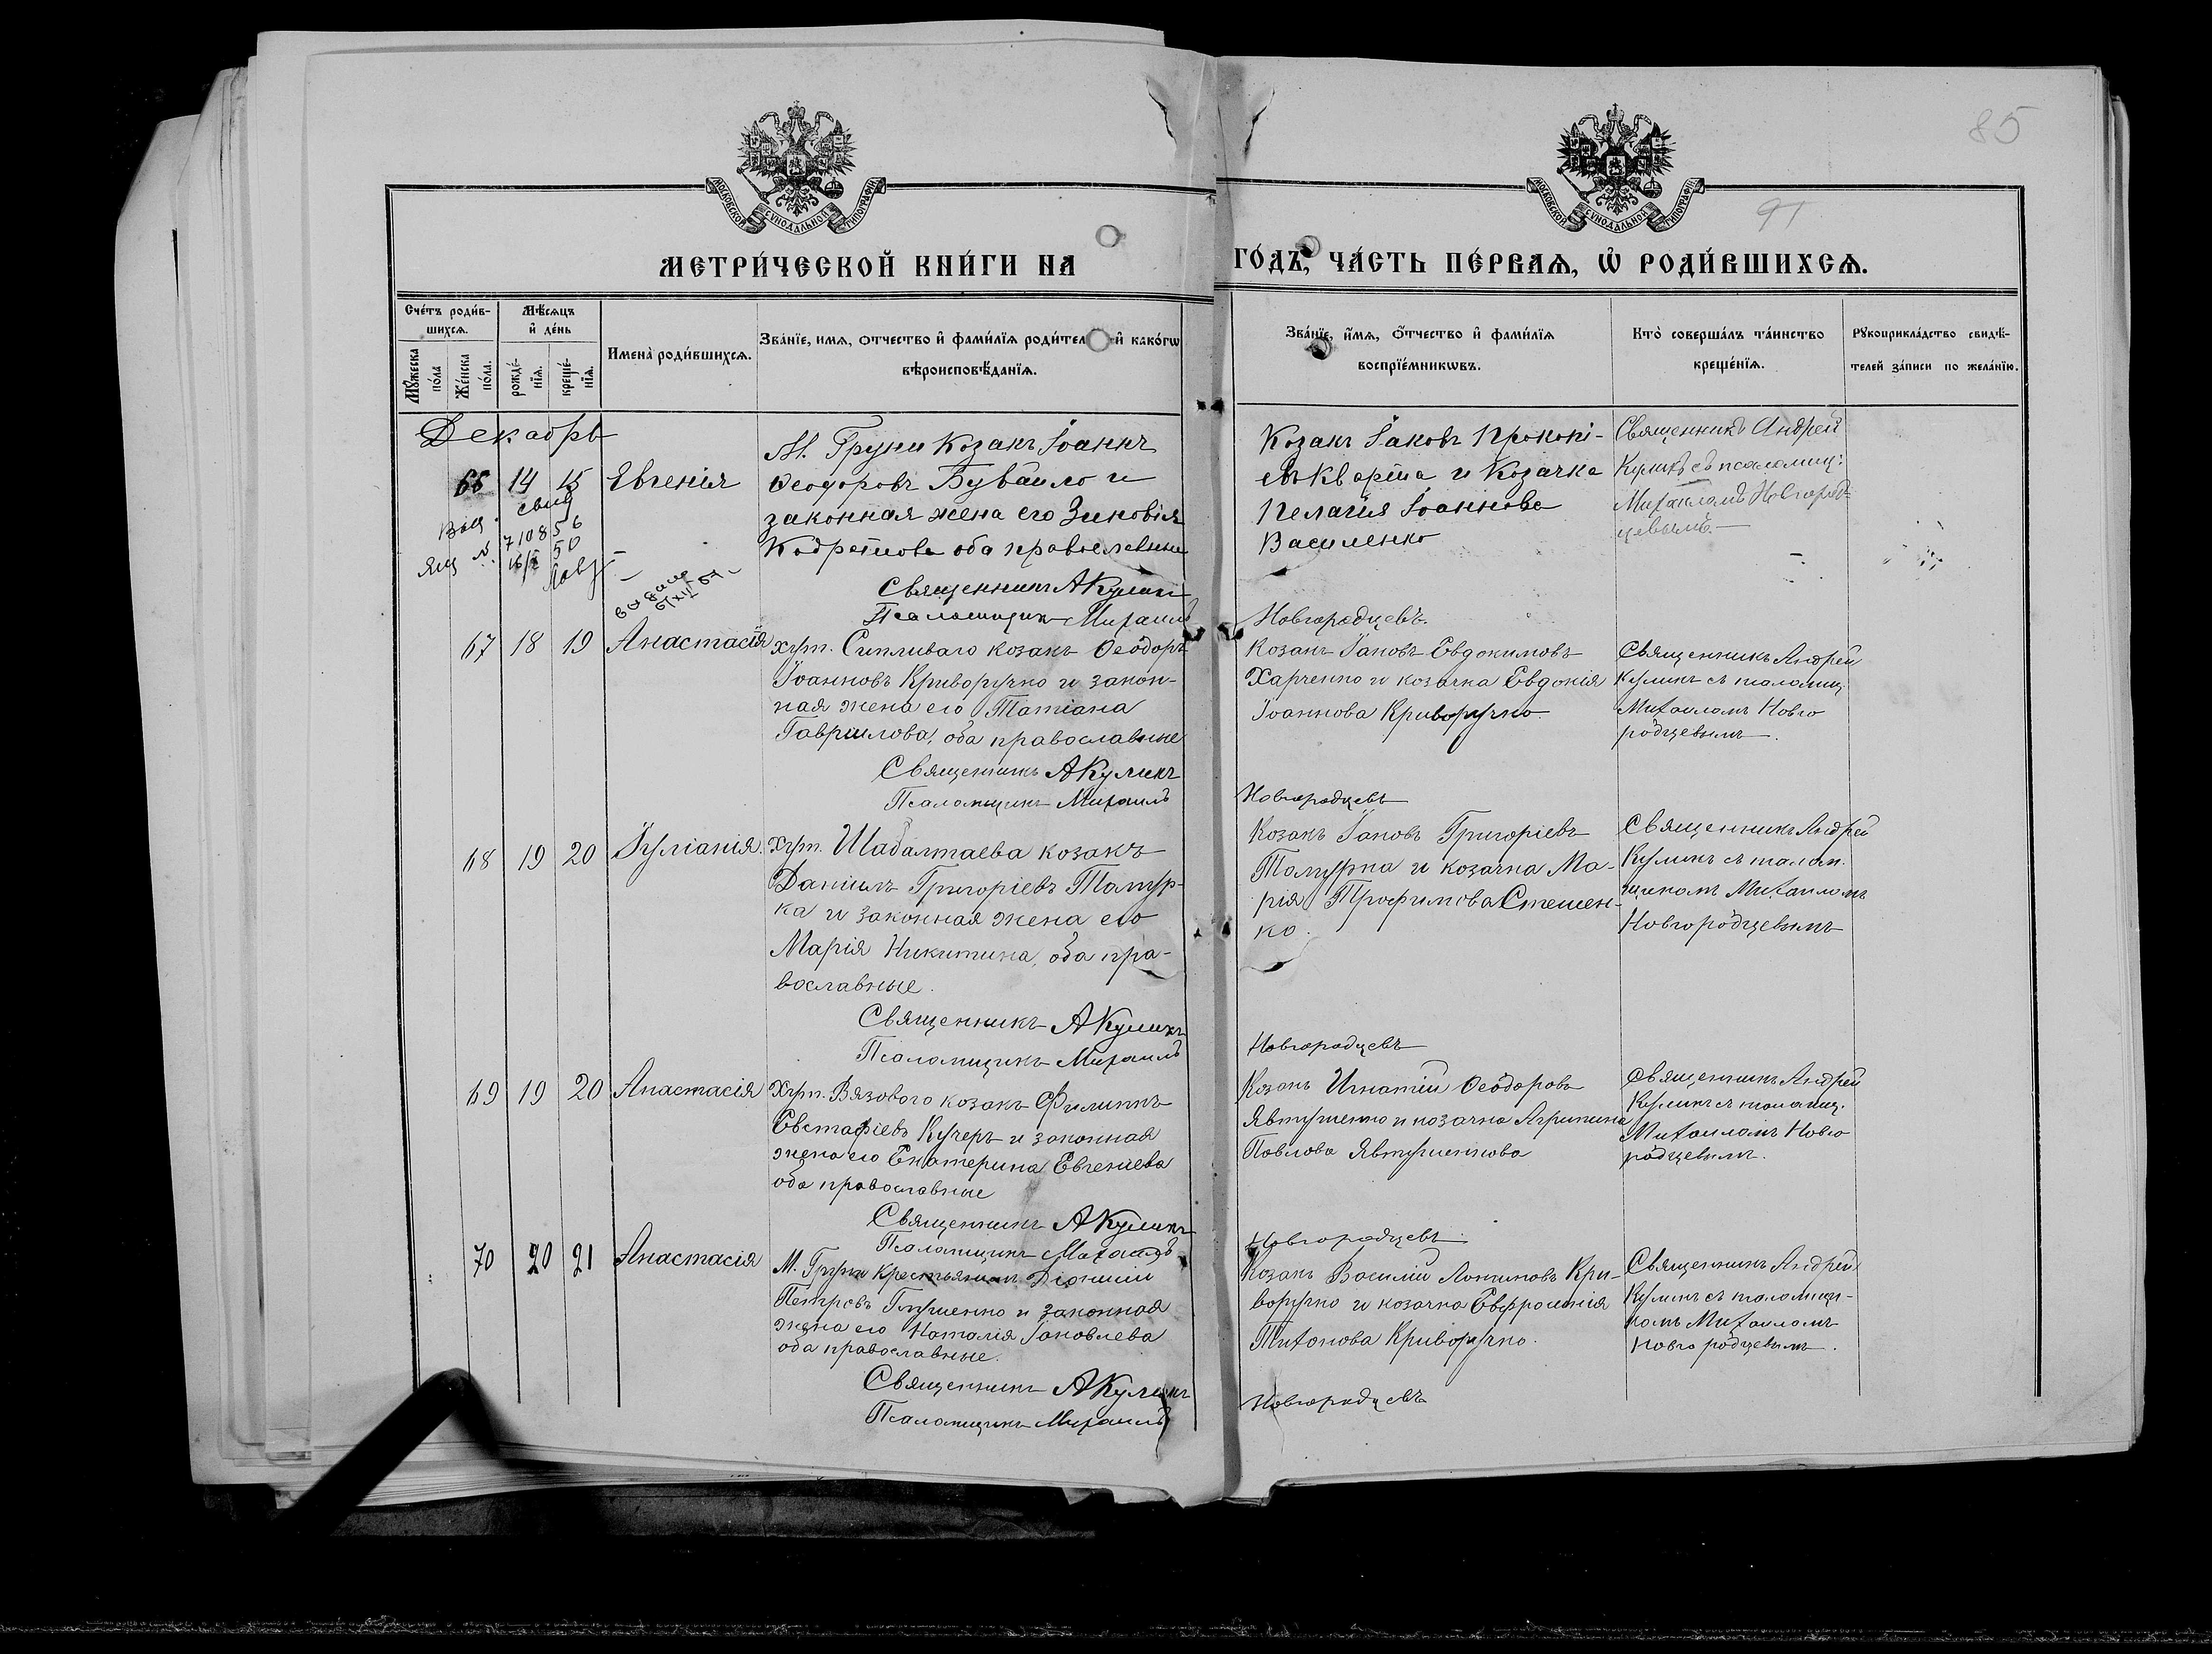 85
91
МОСКОВСКОЙ СУНОДАЛЬНОЙ ТИПОГРАФІИ
МОСКОВСКОЙ СУНОДАЛЬНОЙ ТИПОГРАФІИ
МЕТРИ́ЧЕСКОЙ КНИ́ГИ НА
ГО́ДЪ, ЧА́СТЬ ПЕ́РВАѦ, Ѡ РОДИ́ВШИХСѦ.
Сче́тъ роди́в-
шихсѧ.
Мꙋ́жеска по́ла
Же́нска по́ла.
Мѣ́сѧцъ
и҆ де́нь
рожде́-
нїѧ.
креще́-
нїѧ.
Имена̀ роди́вшихсѧ.
Зва́нїе, имѧ, ѻтчество и҆ фами́лїѧ роди́тел й како́гѡ
вѣроисповѣ́данїѧ.
Зва́нїе, и҆́мѧ, ѻ҆́тчество и҆ фами́лїѧ
воспрїе́мникѡвъ.
Кто̀ соверша́лъ та́инство
креще́нїѧ.
Рꙋкоприкла́дство свидѣ́-
телей за́писи по жела́нїю.
Декабрь
66 14 15 Евгенія
М. Груни Козакъ Іоаннъ
Ѳеодоровъ Бувайло и
законная жена его Зиновія
оба православные
Священникъ А Куликъ
Псаломщикъ Михаилъ
свид
710856
50
выдано
Козакъ Іаковъ Прокопі-
евъ Кварта и Козачка
Пелагія Іоаннова
Василенко
Новгородцевъ.
Священникъ Андрей
Куликъ съ псаломщ:
Михаиломъ Новгород-
цевымъ.
67 18 19 Анастасія
хут. Сипливаго козакъ Ѳеодоръ
Іоанновъ Криворучко и закон-
ная жена его Татіана
Гавриилова, оба православные
Священникъ А Куликъ
Псаломщикъ Михаилъ
Козакъ Іаковъ Евдокимовъ
Харченко и козачка Евдокія
Іоаннова Криворучко.
Новгородцевъ
Священникъ Андрей
Куликъ съ псаломщ.
Михаиломъ Новго
родцевымъ.
68 19 20 Іуліанія.
Хут. Шабалтаева козакъ
Даніилъ Григоріевъ Танцур-
ка и законная жена его
Марія Никитина, оба пра-
вославные.
Священникъ А Куликъ
Псаломщикъ Михаилъ
Козакъ Іаковъ Григоріевъ
Танцурка и козачка Ма-
рія Трофимова Стешен-
ко.
Новгородцевъ
Священникъ Андрей
Куликъ съ псалом.
щикомъ Михаиломъ
Новгородцевымъ
69 19 20 Анастасія
Хут. Вязового козакъ Филиппъ
Евстафіевъ Кучеръ и законная
жена его Екатерина Евгеніева
оба православные
Священникъ А Куликъ
Псаломщикъ Михаилъ
Козакъ Игнатій Ѳеодоровъ
Явтушенко и козачка Агрипина
Павлова Явтушенкова
Новгородцевъ
Священникъ Андрей
Куликъ съ псаломщ.
Михаиломъ Новго
родцевымъ.
70 20 21 Анастасія
М. Груни крестьянинъ
Петровъ и законная
жена его Наталія Іаковлева
оба православные.
Священникъ А Куликъ
Псаломщикъ Михаилъ
Козакъ Василій Логиновъ Кри-
воручко и козачка Евфросинія
Тихонова Криворучко.
Новгородцевъ
Священникъ Андрей
Куликъ съ псаломщи-
комъ Михаиломъ
Новгородцевымъ.